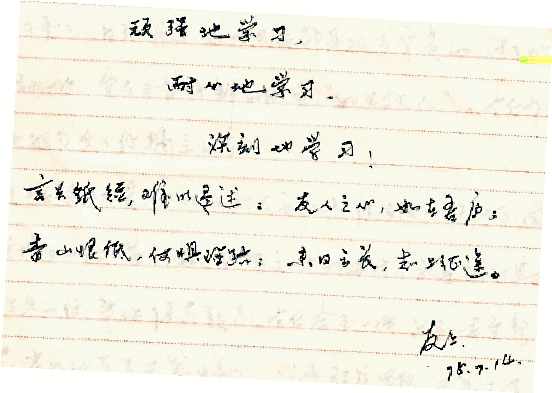 顽强地学习,
耐心地学习.
深刻地学习!
言长纸短,难以尽述; 友人之心,如在吾旁;
青山恨低,何惧理疏; 来日方长,志上征途。
友上.
75.7.14.